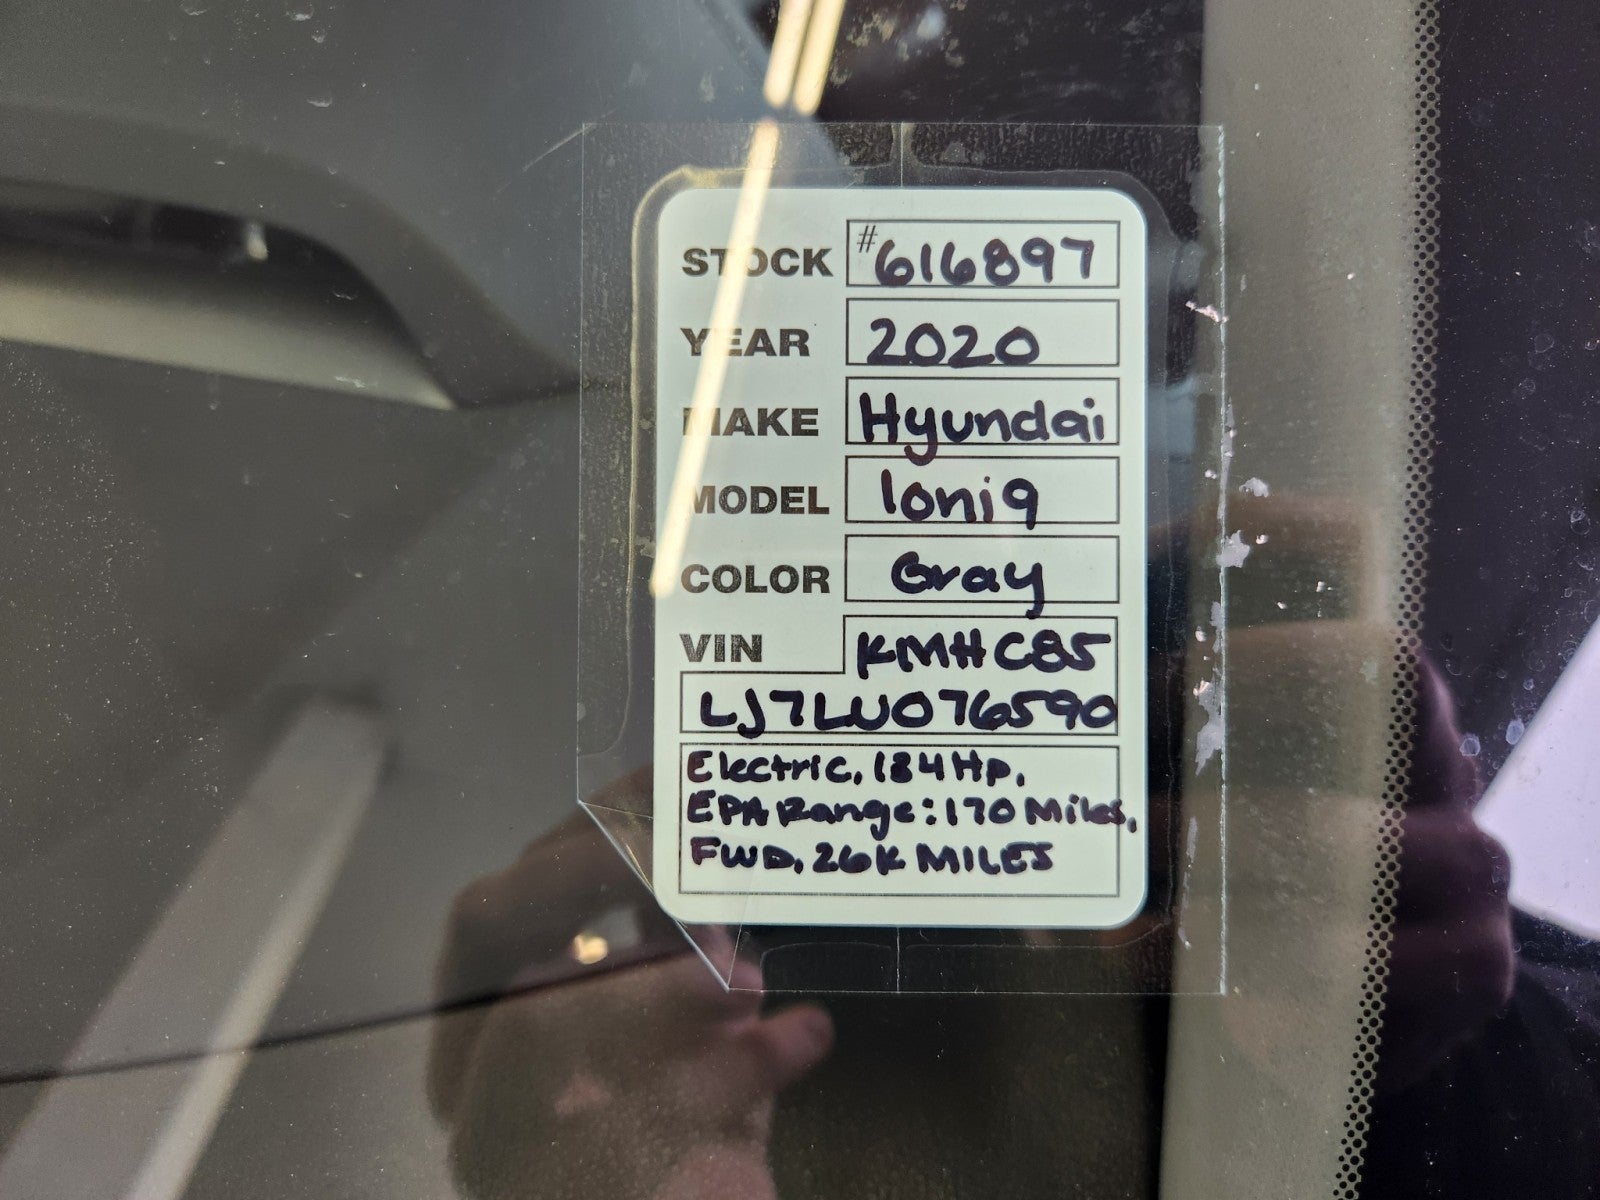 STOCK #616897
YEAR 2020
MAKE Hyundai
MODEL Ioniq
COLOR Gray
VIN KMHC85
LJ7LU076590
Electric, 134Hp,
EPA Range: 170 Miles,
FWD, 26K MILES